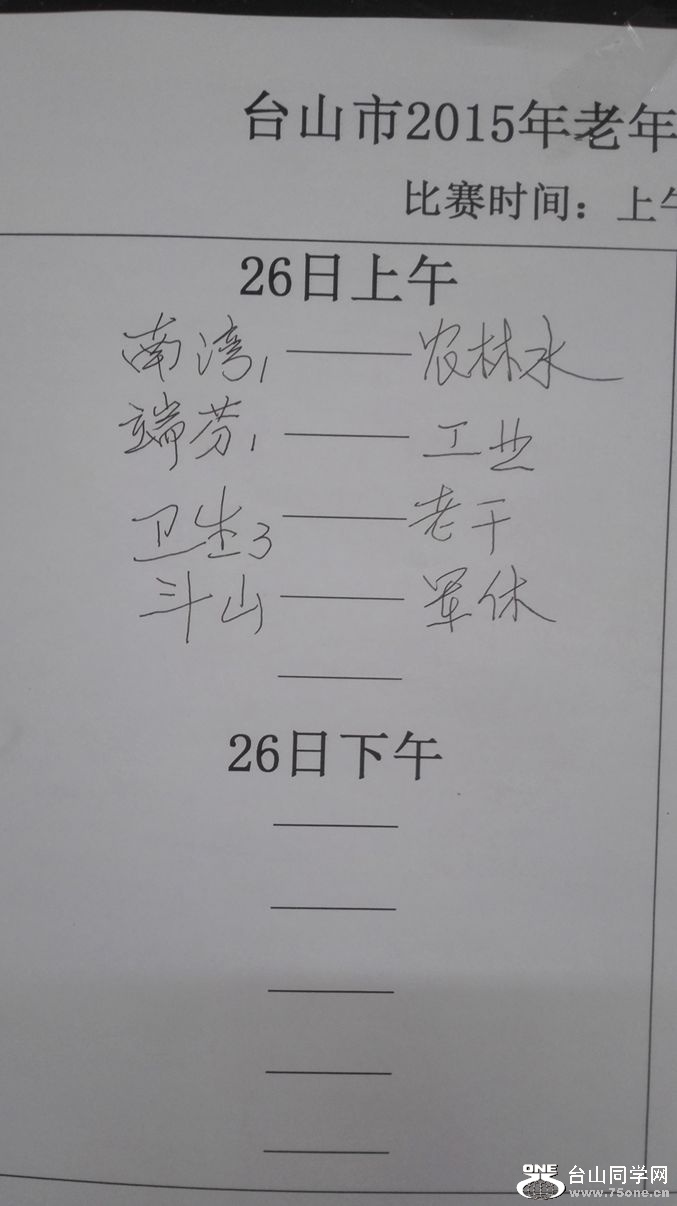 台山市2015年老年
比赛时间：上午
26日上午
南湾1——农林水
端芬1——工业
卫生3——老干
斗山——军休
——
26日下午
——
——
——
——
——
ONE 台山同学网
www.75one.cn